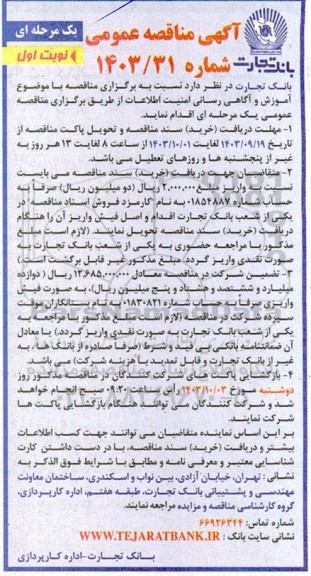 یک مرحله ای
آگهی مناقصه عمومی
نوبت اول
شماره ۱۴۰۳/۳۱
بانک تجارت
بانک تجارت در نظر دارد نسبت به برگزاری مناقصه با موضوع
آموزش و آگاهی رسانی امنیت اطلاعات از طریق برگزاری مناقصه
عمومی یک مرحله ای اقدام نماید.
۱- مهلت دریافت (خرید) سند مناقصه و تحویل پاکت مناقصه از
تاریخ ۱۴۰۳/۰۹/۱۹ لغایت ۱۴۰۳/۱۰/۰۱ از ساعت ۸ لغایت ۱۳ هر روز به
غیر از پنجشنبه ها و روزهای تعطیل می باشد.
۲- متقاضیان جهت دریافت (خرید) سند مناقصه می بایست
نسبت به واریز مبلغ ۲,۰۰۰,۰۰۰ ریال (دو میلیون ریال) صرفاً به
حساب شماره ۰۱۸۵۴۸۸۷ به نام "کارمزد فروش اسناد مناقصه" در
یکی از شعب بانک تجارت اقدام و اصل فیش واریز آن را هنگام
دریافت (خرید) سند مناقصه تحویل نمایند. (لازم است مبلغ
مذکور با مراجعه حضوری به یکی از شعب بانک تجارت به
صورت نقدی واریز گردد. مبلغ مذکور غیر قابل برگشت است.)
۳- تضمین شرکت در مناقصه معادل ۱۲,۶۸۵,۰۰۰,۰۰۰ ریال (دوازده
میلیارد و ششصد و هشتاد و پنج میلیون ریال)، به صورت فیش
واریزی صرفاً به حساب شماره ۰۱۸۳۰۸۲۱ به نام بستانکاران موقت
سپرده شرکت در مناقصه (لازم است مبلغ مذکور با مراجعه به
یکی از شعب بانک تجارت به صورت نقدی واریز گردد.) یا معادل
آن ضمانتنامه بانکی بی قید و شرط (صرفاً صادره از بانک ها، به
غیر از بانک تجارت و قابل تمدید با هزینه شرکت) می باشد.
۴- بازگشایی پاکت های شرکت کنندگان در مناقصه مذکور روز
دوشنبه مورخ ۱۴۰۳/۱۰/۰۳ رأس ساعت ۰۹:۲۰ صبح انجام خواهد
شد و شرکت کنندگان می توانند هنگام بازگشایی پاکت ها
شرکت نمایند.
بر این اساس نماینده متقاضیان می توانند جهت کسب اطلاعات
بیشتر و دریافت (خرید) سند مناقصه، با در دست داشتن کارت
شناسایی معتبر و معرفی نامه و مطابق با شرایط فوق الذکر به
نشانی: تهران، خیابان آزادی، بین نواب و اسکندری، ساختمان معاونت
مهندسی و پشتیبانی بانک تجارت، طبقه هفتم، اداره کارپردازی،
گروه کارشناسی مناقصه و مزایده مراجعه نمایند.
شماره تماس: ۶۶۹۲۶۳۴۴
نشانی سایت بانک: WWW.TEJARATBANK.IR
بانک تجارت-اداره کارپردازی